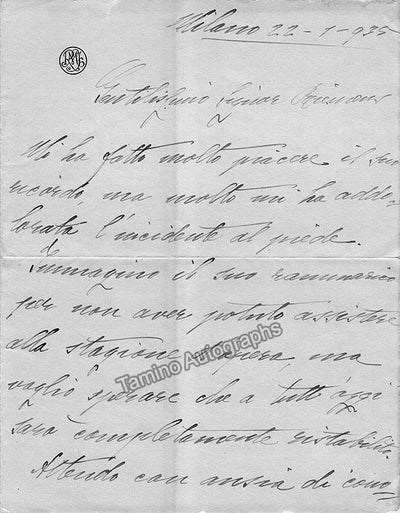 Milano 22-1-935
Gentilissimo Signor
Mi ha fatto molto piacere il suo
ricordo, ma molto mi ha addo-
lorata l'incidente al piede.
Immagino il suo rammarico
per non aver potuto assistere
alla stagione, ma
voglio sperare che a tutt'oggi
sarà completamente ristabilito.
Attendo con ansia di cono-
Tamino Autographs